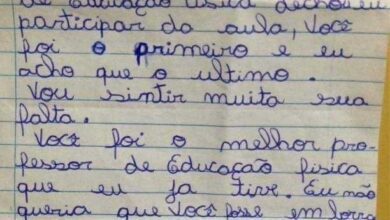 de Educação fisica deichou eu
participar da aula, você
foi o primeiro e eu
acho que o ultimo.
Vou sintir muita sua
falta.
Você foi o melhor pro-
fessor de Educação fisica
que eu ja tive. Eu não
queria que você fosse embora